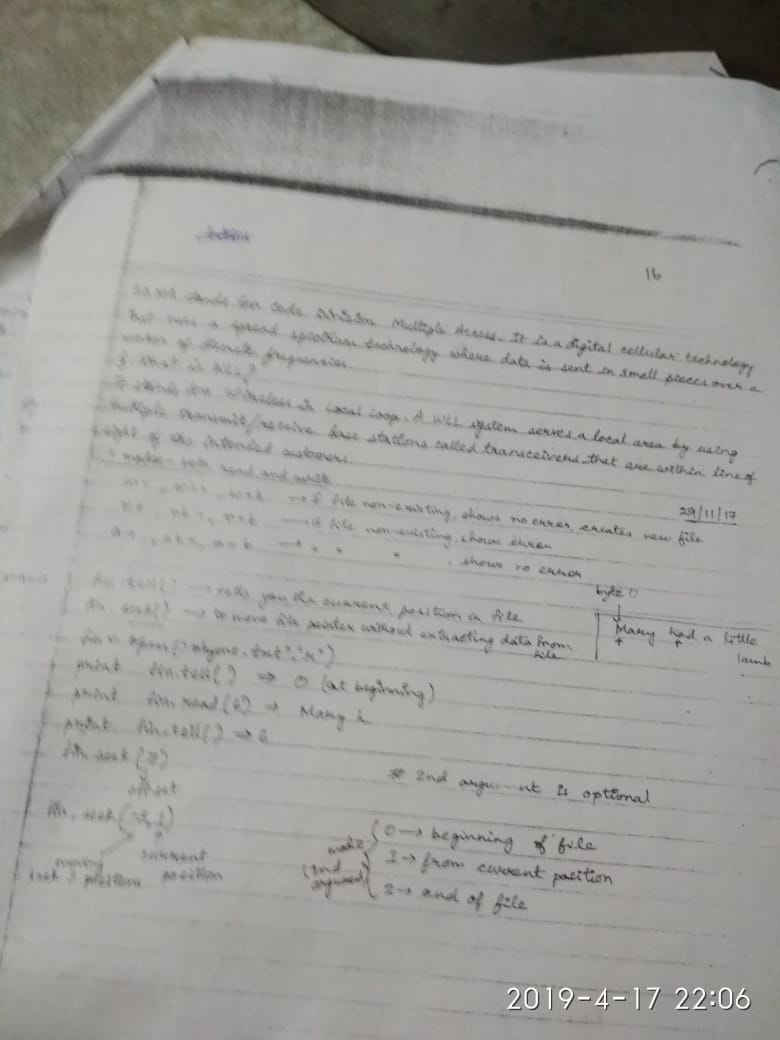 16
stands for Code Division Multiple Access. It is a digital cellular technology
that uses a spread spectrum technology where data is sent in small pieces over a
number of discrete frequencies.
What is WLL?
It stands for Wireless in Local Loop. A WLL system serves a local area by using
multiple transmit/receive base stations called transceivers that are within line of
sight of the intended customers.
modes - both read and write
29/11/17
→ if file non-existing, shows no error, creates new file
→ if file non-existing, shows error
→ " " " , shows no error
fin.tell() → tells you the current position in file
fin.seek() → to move file pointer without extracting data from
file
byte 0
Mary had a little
lamb
print fin.tell() ⇒ 0 (at beginning)
print fin.read(6) ⇒ Mary h
print fin.tell() ⇒ 6
fin.seek
offset
* 2nd argument is optional
fin.seek
moving
back 3 position
current
position
mode
(2nd
argument)
0 → beginning of file
1 → from current position
2 → end of file
2019-4-17 22:06